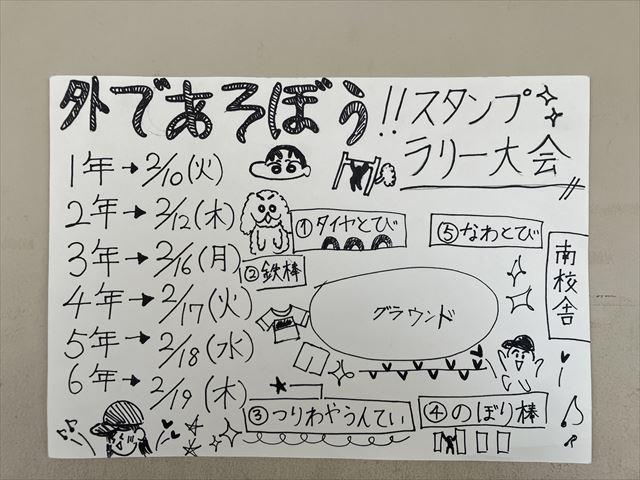 外であそぼう!!
スタンプ
ラリー大会
1年→2/10(火)
2年→2/12(木)
3年→2/16(月)
4年→2/17(火)
5年→2/18(水)
6年→2/19(木)
①タイヤとび
⑤なわとび
②鉄棒
南校舎
グラウンド
③つりわやうんてい
④のぼり棒